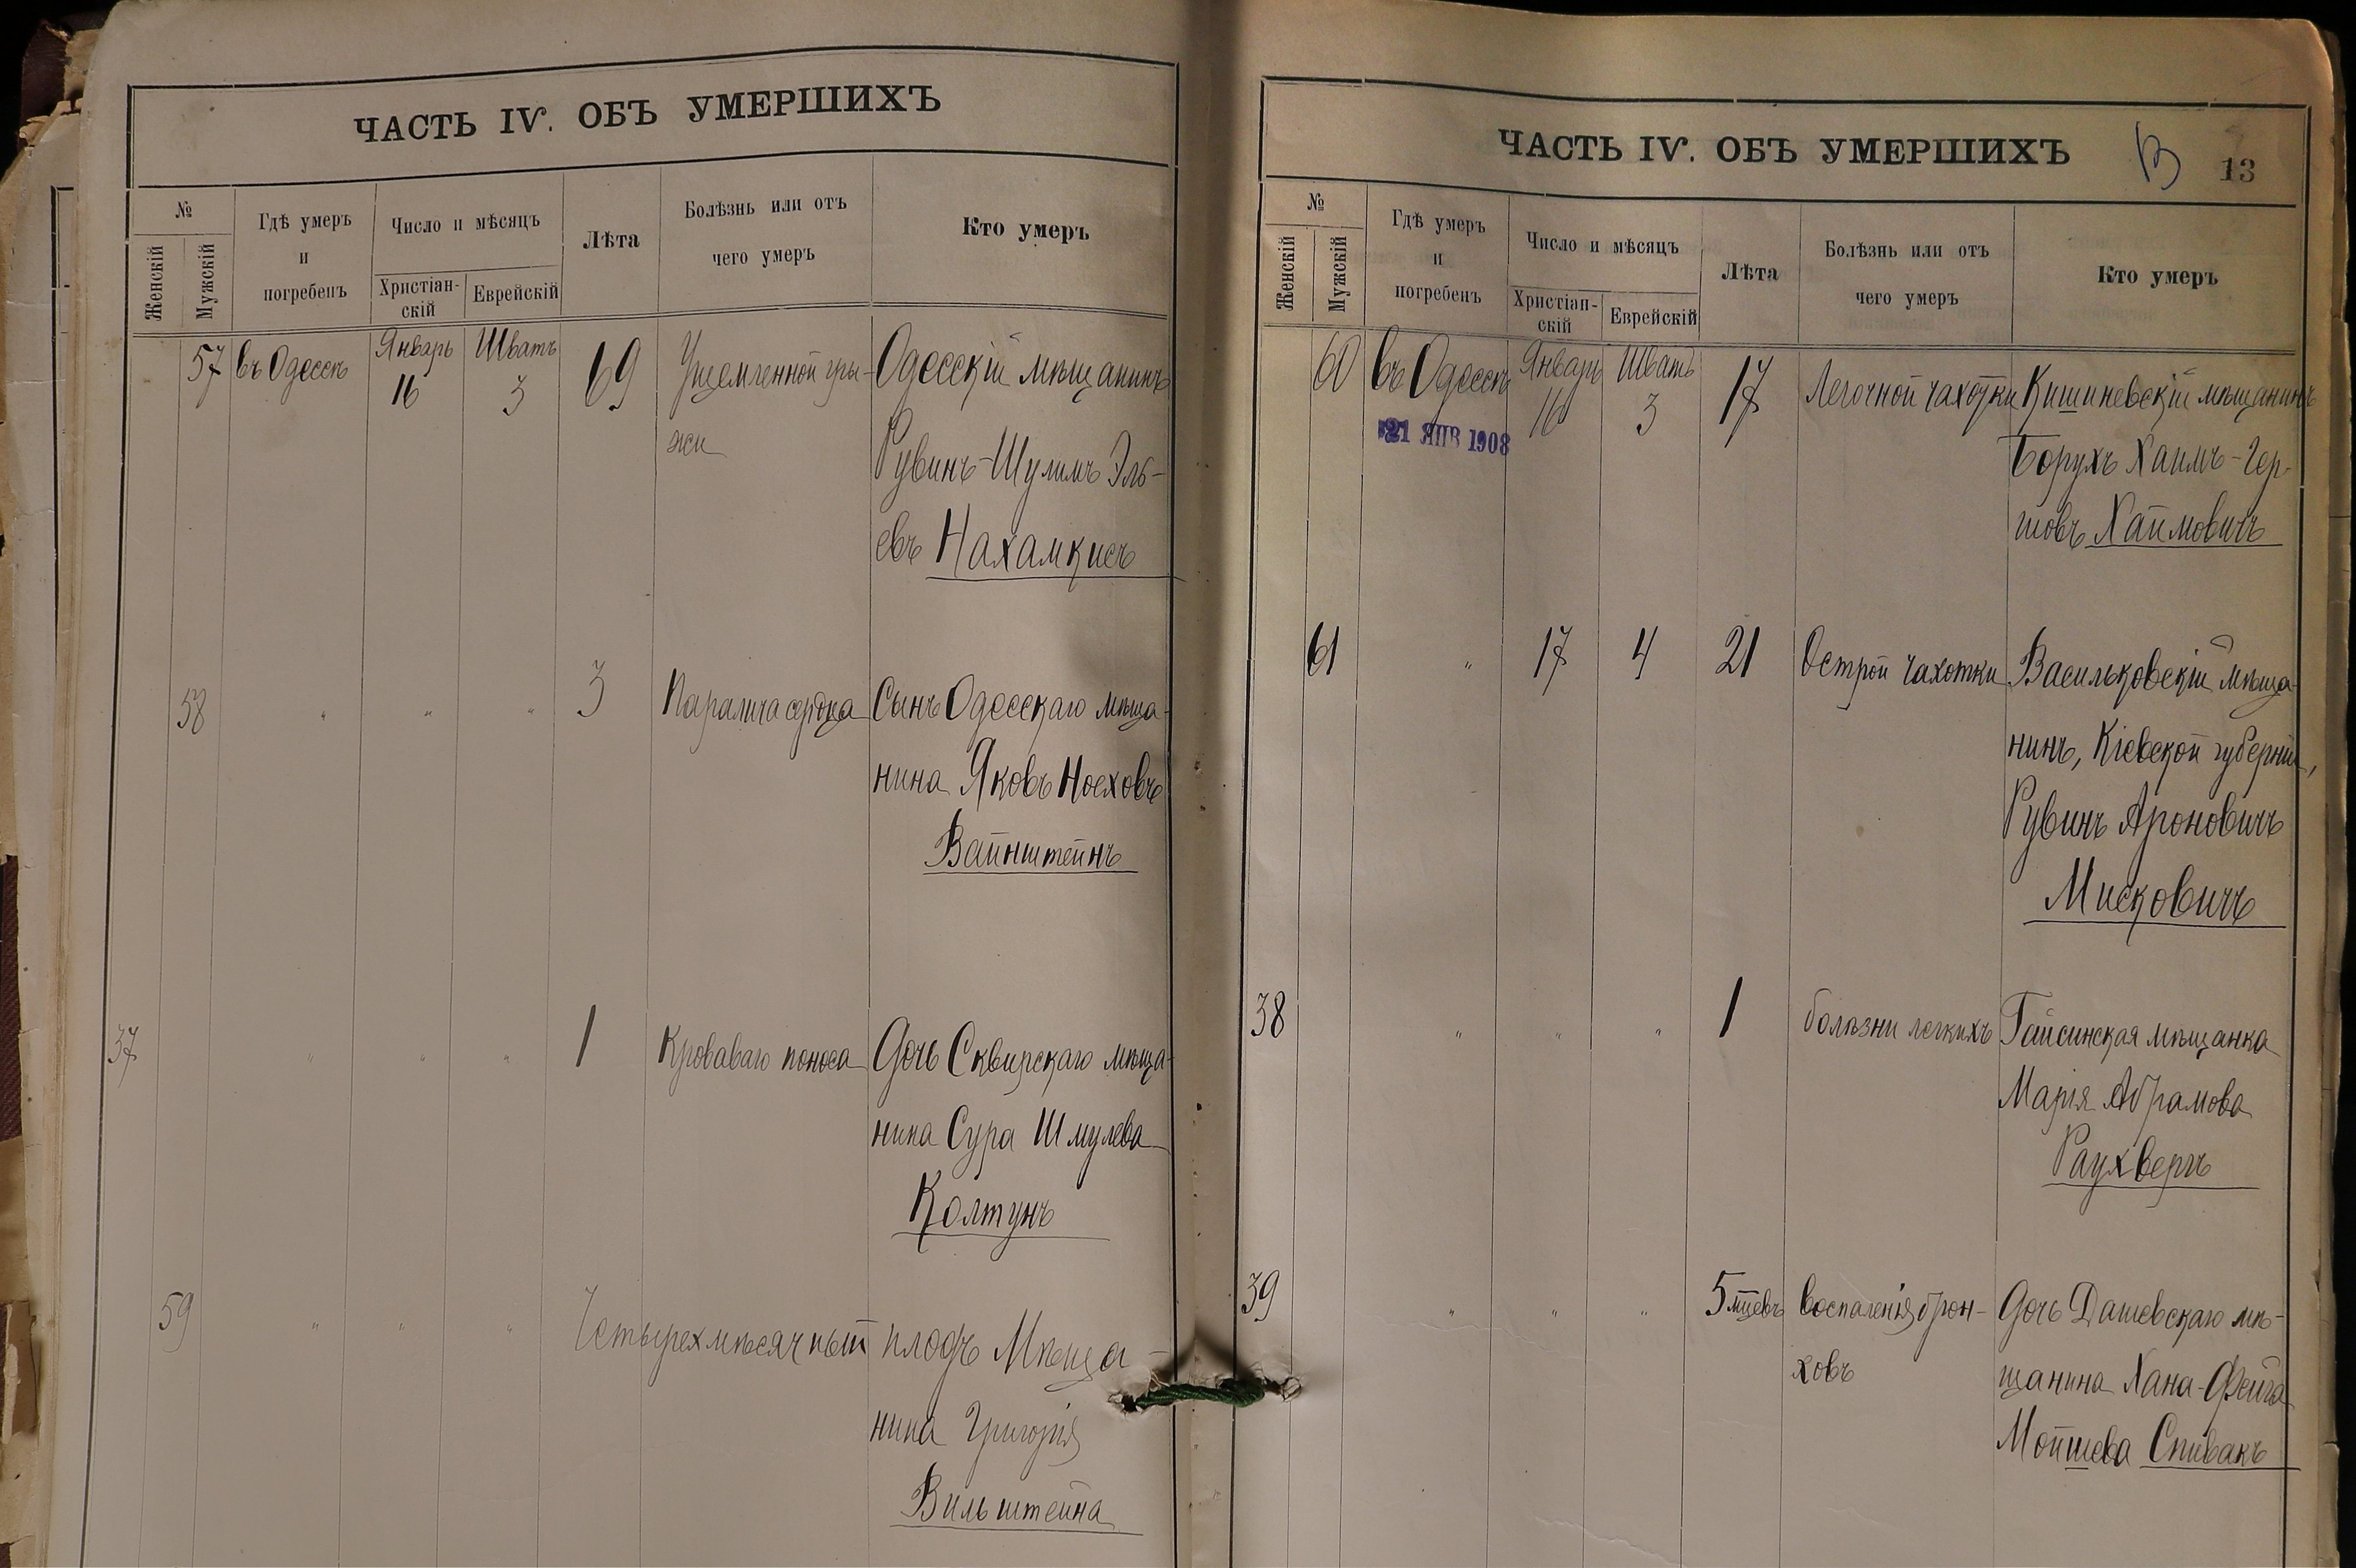 ЧАСТЬ IV. ОБЪ УМЕРШИХЪ
№
Женскій
Мужскій
Гдѣ умеръ
и
погребенъ
Число и мѣсяцъ
Христіан-
скій
Еврейскій
Лѣта
Болѣзнь или отъ
чего умеръ
Кто умеръ
57 въ Одессѣ Январь 16 Шватъ 3 69 Ущемленной гры- Одесскій мѣщанинъ
жи Рувинъ-Шулимъ Эль-
евъ Нахамкисъ
58 " " " 3 Паралича сердца Сынъ Одесскаго мѣща-
нина Яковъ Носховъ
Вайнштейнъ
37 " " " 1 Кроваваго поноса Дочь Сквирскаго мѣща-
нина Сура Шмулева
Колтунъ
59 " " " Четырехмѣсячный плодъ Мѣща-
нина Григорія
Вильштейна
ЧАСТЬ IV. ОБЪ УМЕРШИХЪ
13
№
Женскій
Мужскій
Гдѣ умеръ
и
погребенъ
Число и мѣсяцъ
Христіан-
скій
Еврейскій
Лѣта
Болѣзнь или отъ
чего умеръ
Кто умеръ
60 въ Одессѣ Январь 16 Шватъ 3 17 Легочной чахотки Кишиневскій мѣщанинъ
21 ЯНВ 1908
Борухъ Хаимъ-Гер-
шовъ Хаймовичъ
61 " 17 4 21 Острой чахотки Васильковскій мѣща-
нинъ, Кіевской губерніи,
Рувинъ Ароновичъ
Мисковичъ
38 " " " 1 болѣзни легкихъ Гайсинская мѣщанка
Марія Абрамова
Раухверъ
39 " " " 5 мцевъ Воспаленія брон- Дочь Дашевскаго мѣ-
ховъ щанина Хана-Фейга
Мойшева Спивакъ